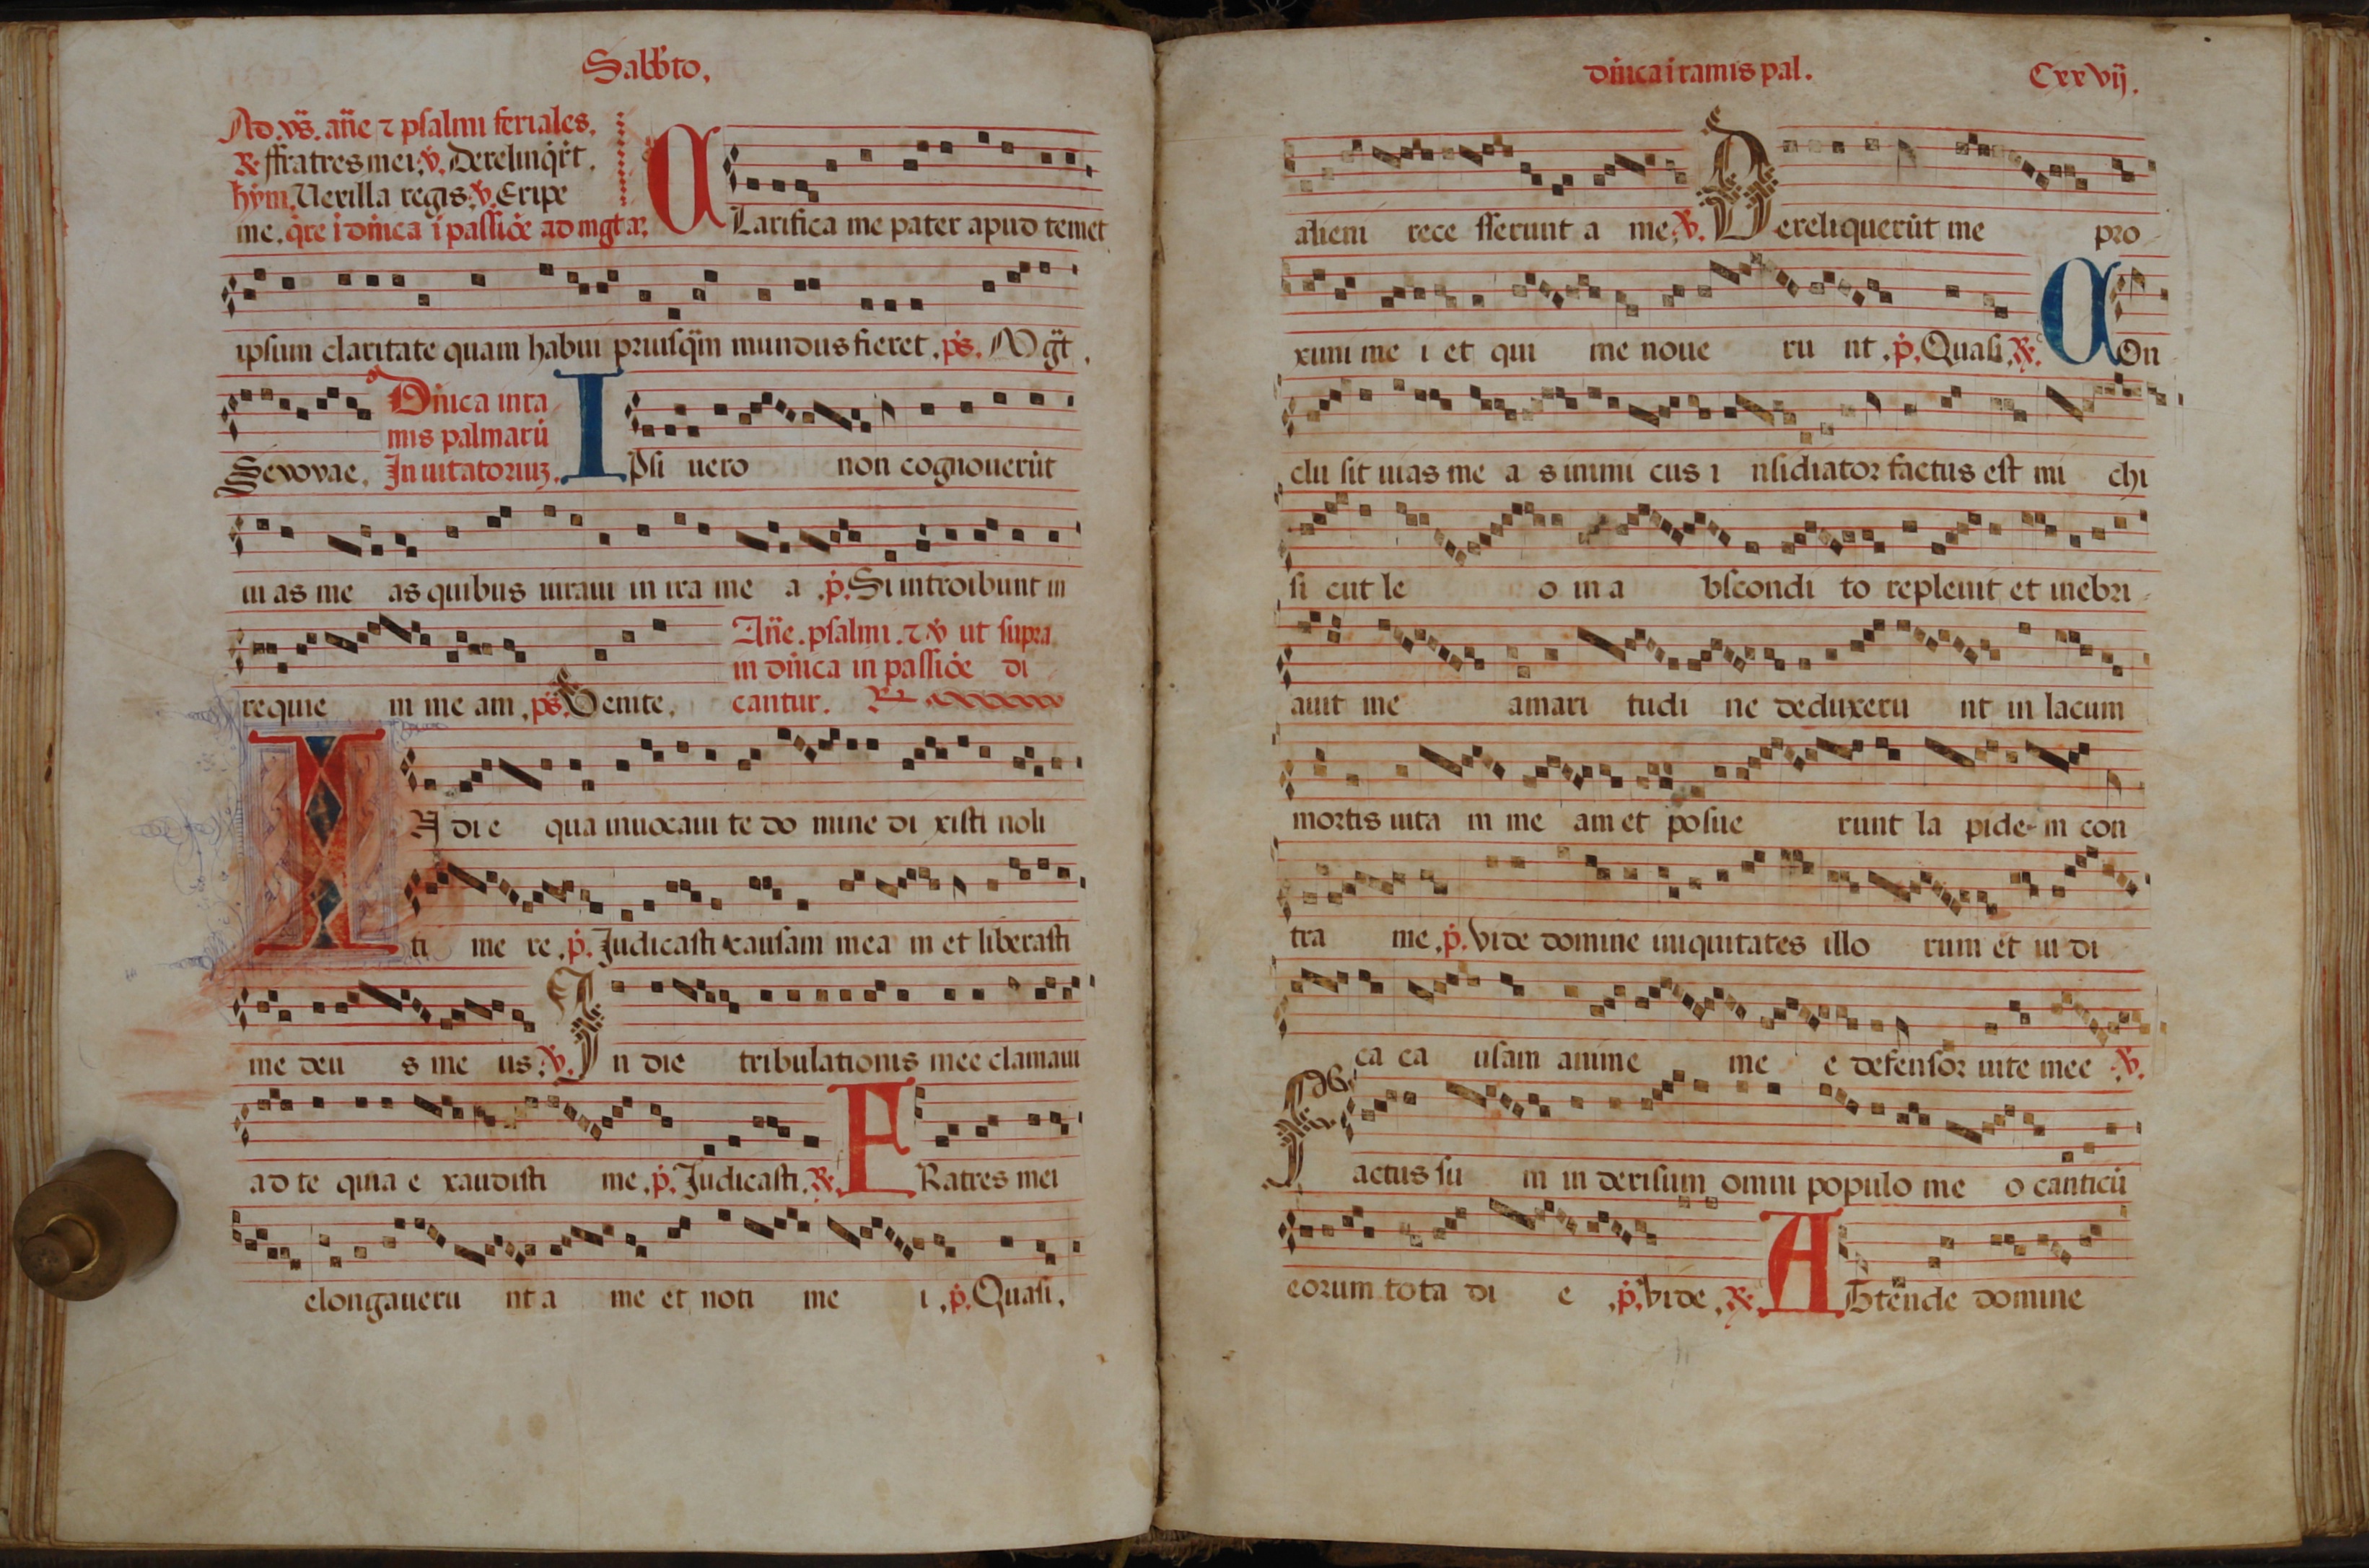 Sabb̄to.
Ad. vs̄. añe ⁊ psalmi feriales.
℟ ffratres mei. ℣. Derelinq̇rt.
hym̄. Uexilla regis. ℣. Eripe
me. q̇re i dn̄ica i passiōe ad mg̃t aͬ.
CLarifica me pater apud temet
ipsum claritate quam habui priusq̄m mundus fieret. ps̄. Mg̃t.
Sevovae. Dn̄ica in ra
mis palmarū
In uitatoriuȝ.
IPsi uero non cognouerūt
ui as me as quibus iuraui in ira me a. p̄. Si introibunt in
requie m me am. ps̄. Uenite.
Añe. psalmi. ⁊ ℣ ut supra
in dn̄ica in passiōe di
cantur. ℟
IN di e qua inuocaui te do mine di xisti noli
ti me re. p̄. Judicasti causam mea m et liberasti
me deu s me us. ℣. In die tribulationis mee clamaui
ad te quia e xaudisti me. p̄. Judicasti. ℟. FRatres mei
elongaueru nt a me et noti me i. p̄. Quasi.
dn̄ica i ramis pal. Cxxvij.
alieni rece sserunt a me. ℣. Dereliquerūt me pro
ximi me i et qui me noue ru nt. p̄. Quasi. ℟. COn
clu sit uias me a s inimi cus i nsidiator factus est mi chi
si cut le o in a bscondi to repleuit et inebri
auit me amari tudi ne deduxeru nt in lacum
mortis uita m me am et posue runt la pide-m con
tra me. p̄. Vide domine iniquitates illo rum et iu di
ca ca usam anime me e defensor uite mee ℣.
Factus su m in derisum omni populo me o canticū
eorum tota di e. p̄. Vide. ℟. ATtēnde domine